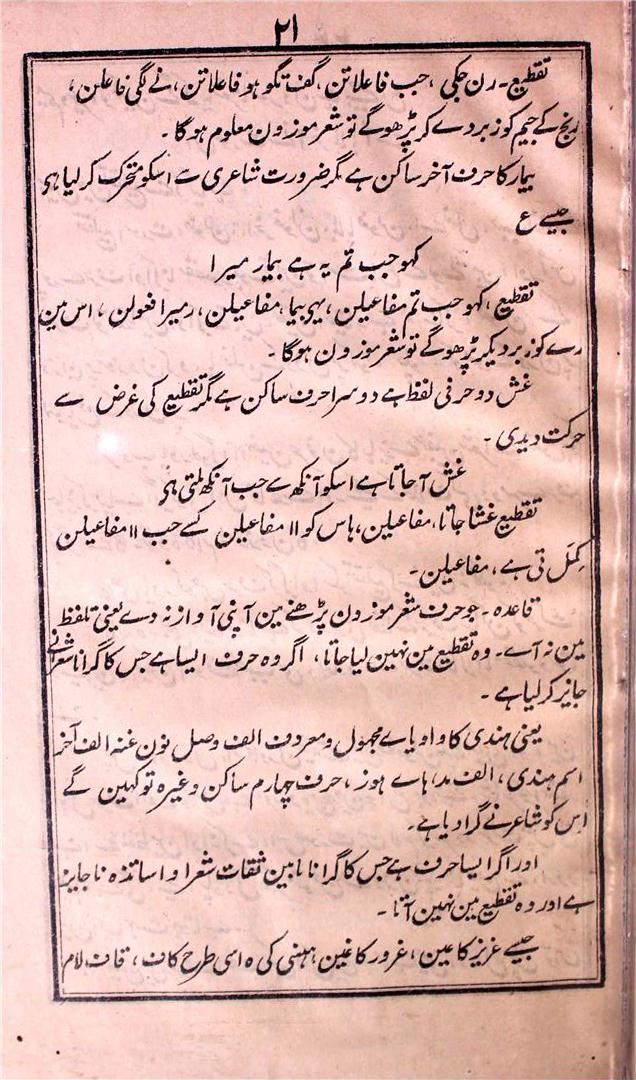 ۲۱
تقطیع۔ رن جکی ، حب فاعلاتن ، گف تگو ہو فاعلاتن ، نے لگی فاعلن ،
رنج کے جیم کو زبر دے کر پڑھوگے تو شعر موزون معلوم ہوگا ۔
بیمار کا حرف آخر ساکن ہے مگر ضرورت شاعری سے اسکو متحرک کر لیا ہی
جیسے ع
کہو جب تم یہ ہے بیمار میرا
تقطیع ، کہو جب تم مفاعیلن ، یہی بیما ، مفاعیلن ، رمیرا فعولن ، اس مین
رے کو زبر دیکر پڑھوگے تو شعر موزون ہوگا ۔
غش دو حرفی لفظ ہے دوسرا حرف ساکن ہے مگر تقطیع کی غرض سے
حرکت دیدی ۔
غش آ جاتا ہے اسکو آنکھ سے جب آنکھ ملتی ہی
تقطیع غشا جاتا ، مفاعیلن ، ہاس کو ۱۱ مفاعیلن کے جب ۱۱ مفاعیلن
کمل تی ہے ، مفاعیلن ۔
قاعدہ ۔ جو حرف شعر موزون پڑھنے مین آپنی آواز نہ دے یعنی تلفظ
مین نہ آے ۔ وہ تقطیع مین نہین لیا جاتا ، اگر وہ حرف ایسا ہے جس کا گرانا شعرانے
جایز کر لیا ہے ۔
یعنی ہندی کا واو یاے مجہول و معروف الف وصل نون غنہ الف آخر
اسم ہندی ، الف مد ، ہاے ہوز ، حرف چہارم ساکن وغیرہ تو کہین گے
اس کو شاعر نے گرا دیا ہے ۔
اور اگر ایسا حرف ہے جس کا گرانا مابین ثقات شعرا و اساتذہ ناجایز
ہے اور وہ تقطیع مین نہین آتا ۔
جیسے عزیز کا عین ، غرور کا غین ہمینی کی ہ اسی طرح کاف ، قاف لام